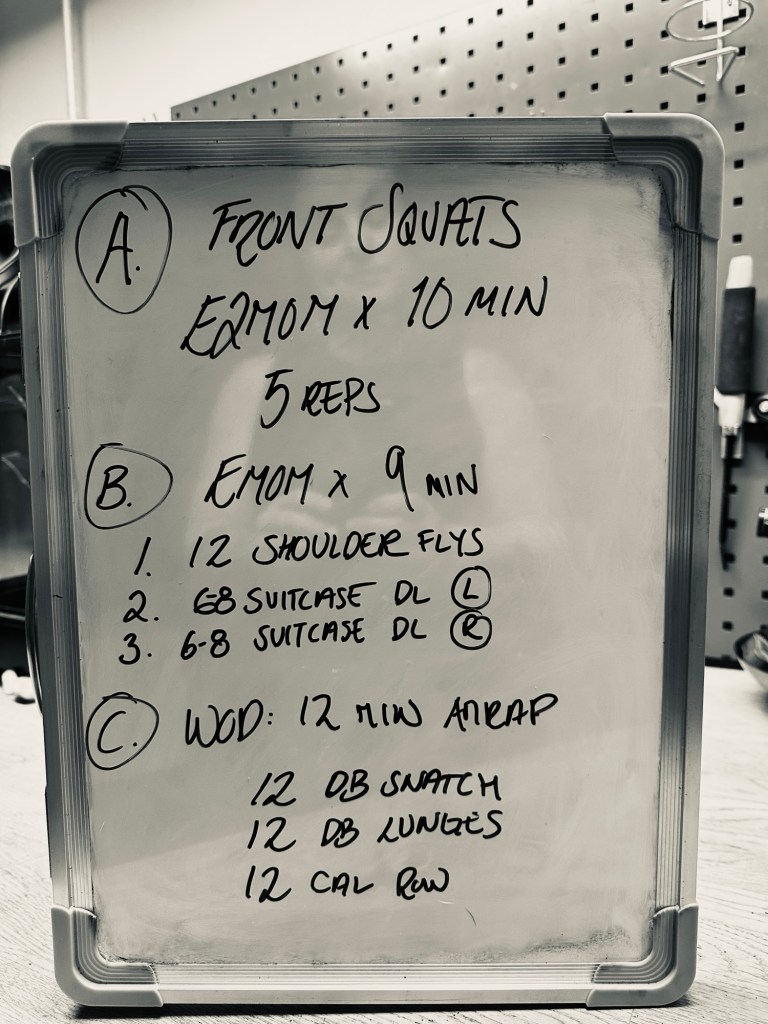 A. FRONT SQUATS
E2MOM X 10 MIN
5 REPS
B. EMOM X 9 MIN
1. 12 SHOULDER FLYS
2. 6-8 SUITCASE DL L
3. 6-8 SUITCASE DL R
C. WOD: 12 MIN AMRAP
12 DB SNATCH
12 DB LUNGES
12 CAL ROW